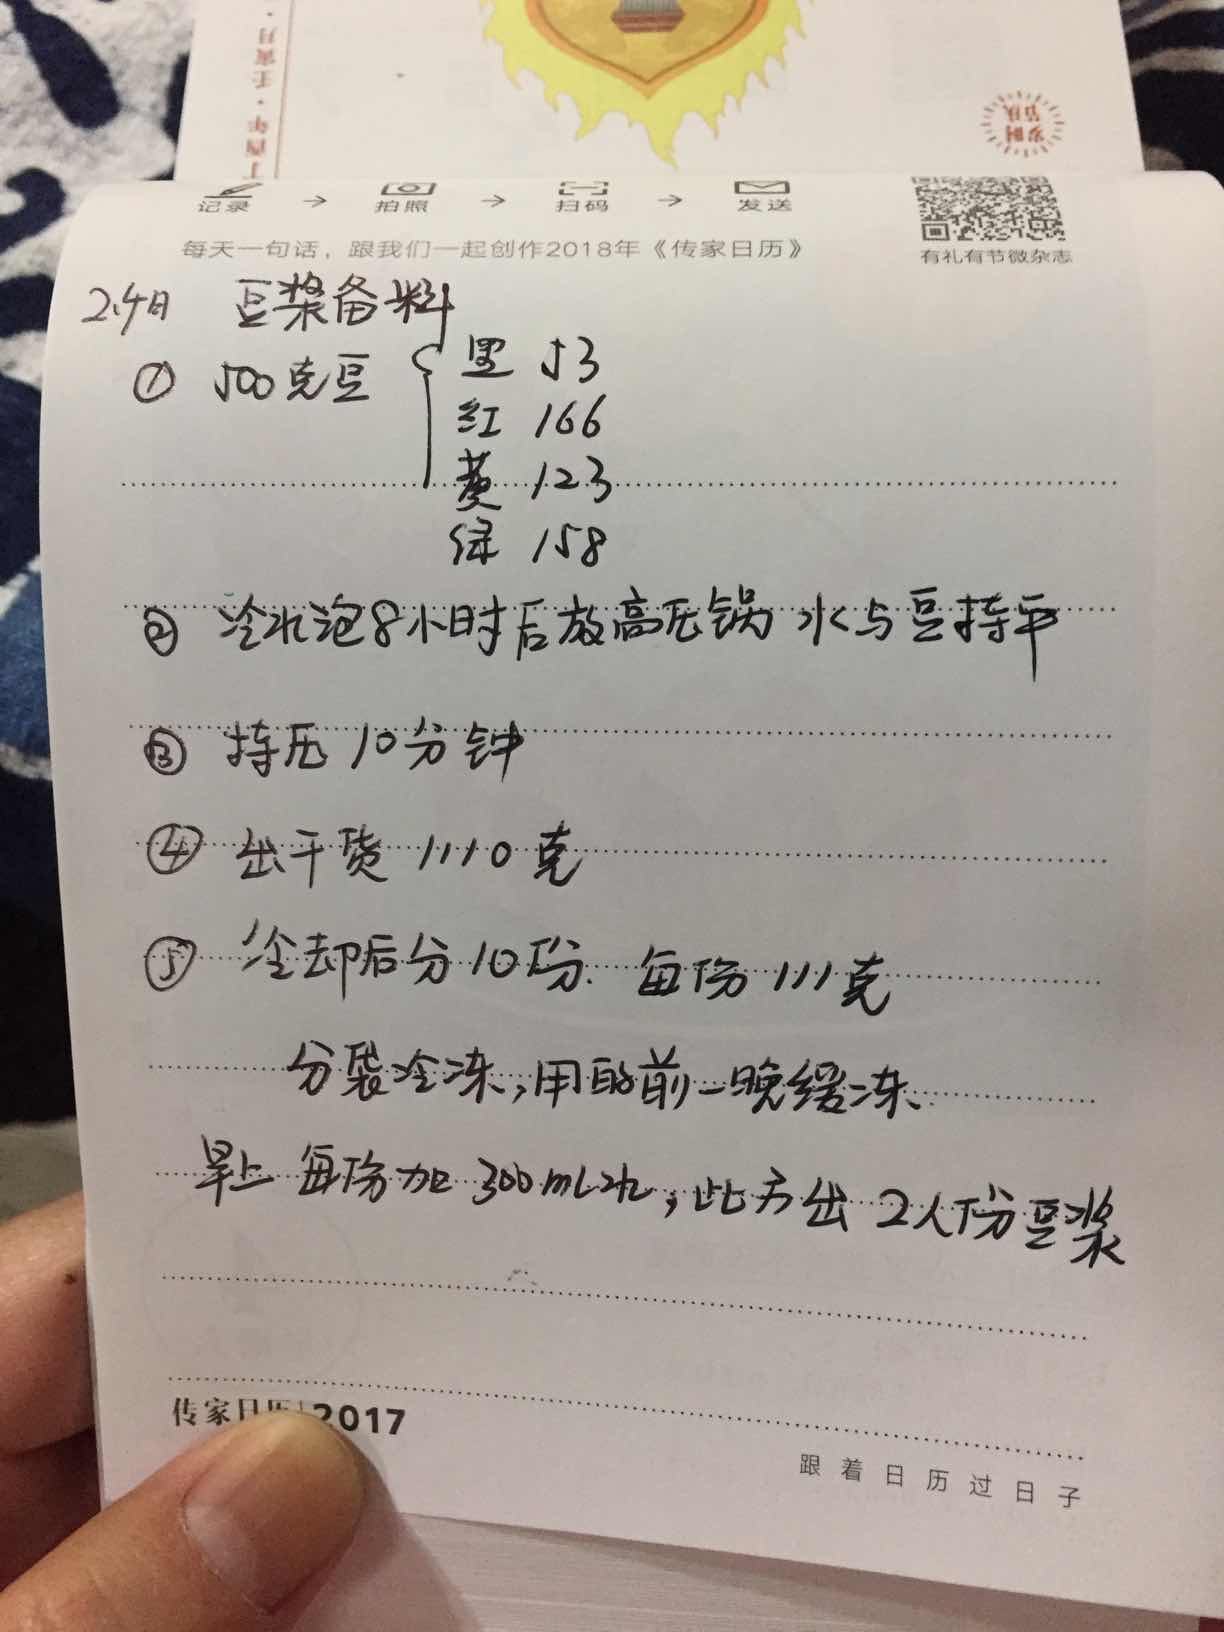 丁酉年·壬寅月·
岁时
节庆
记录 → 拍照 → 扫码 → 发送
每天一句话，跟我们一起创作2018年《传家日历》
有礼有节微杂志
2.4日 豆浆备料
① 500克豆 { 黑 53
红 166
黄 123
绿 158
② 冷水泡8小时后放高压锅 水与豆持平
③ 持压10分钟
④ 出干货 1110克
⑤ 冷却后分10份. 每份111克
分袋冷冻,用的前一晚缓冻.
早上 每份加300ml水,此方出2人份豆浆
传家日历 2017
跟着日历过日子